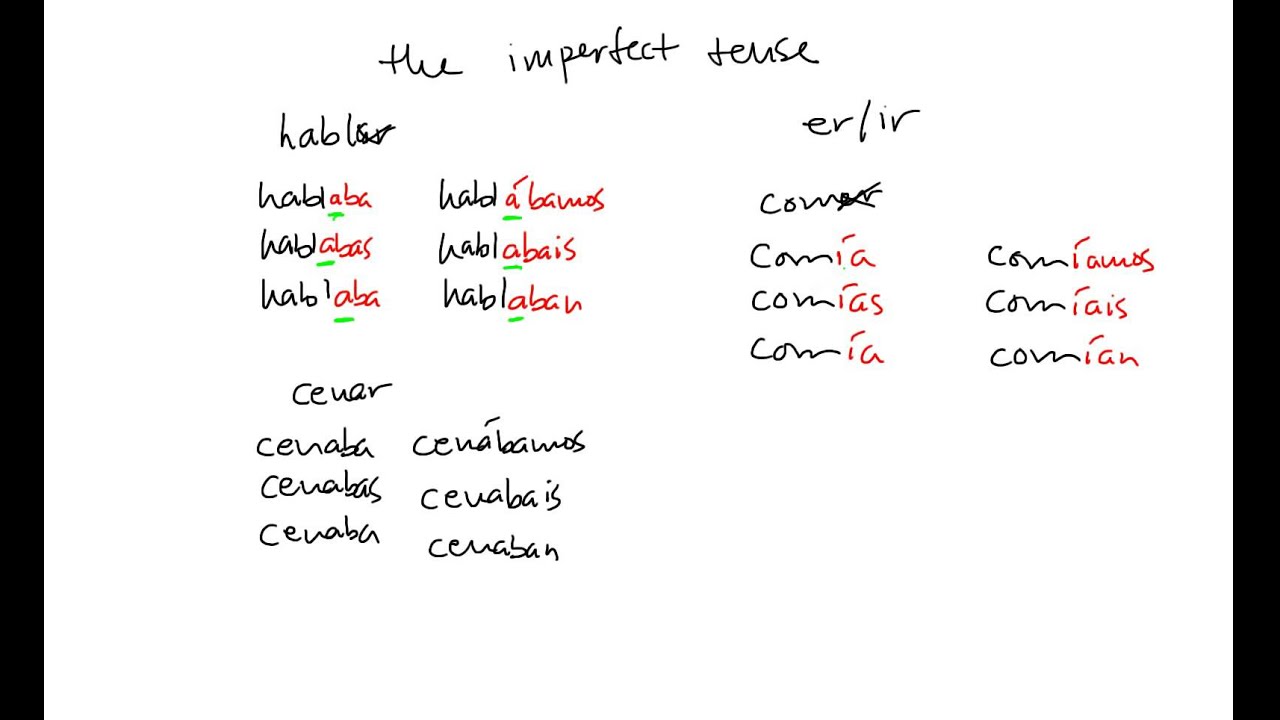 the imperfect tense
hablar
hablaba hablábamos
hablabas hablabais
hablaba hablaban
cenar
cenaba cenábamos
cenabas cenabais
cenaba cenaban
er/ir
comer
comía comíamos
comías comíais
comía comían